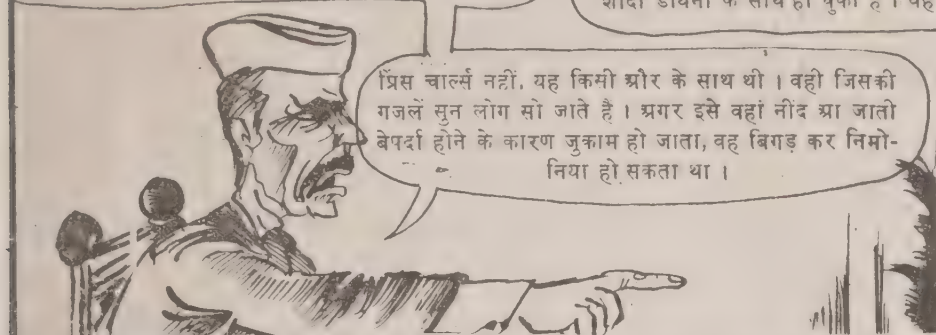 शादी डायना के साथ हो चुकी है । यह
प्रिंस चार्ल्स नहीं, यह किसी और के साथ थी । वही जिसकी
गजलें सुन लोग सो जाते है । अगर इसे वहां नींद आ जाती
बेपर्दा होने के कारण जुकाम हो जाता, वह बिगड़ कर निमो-
निया हो सकता था ।